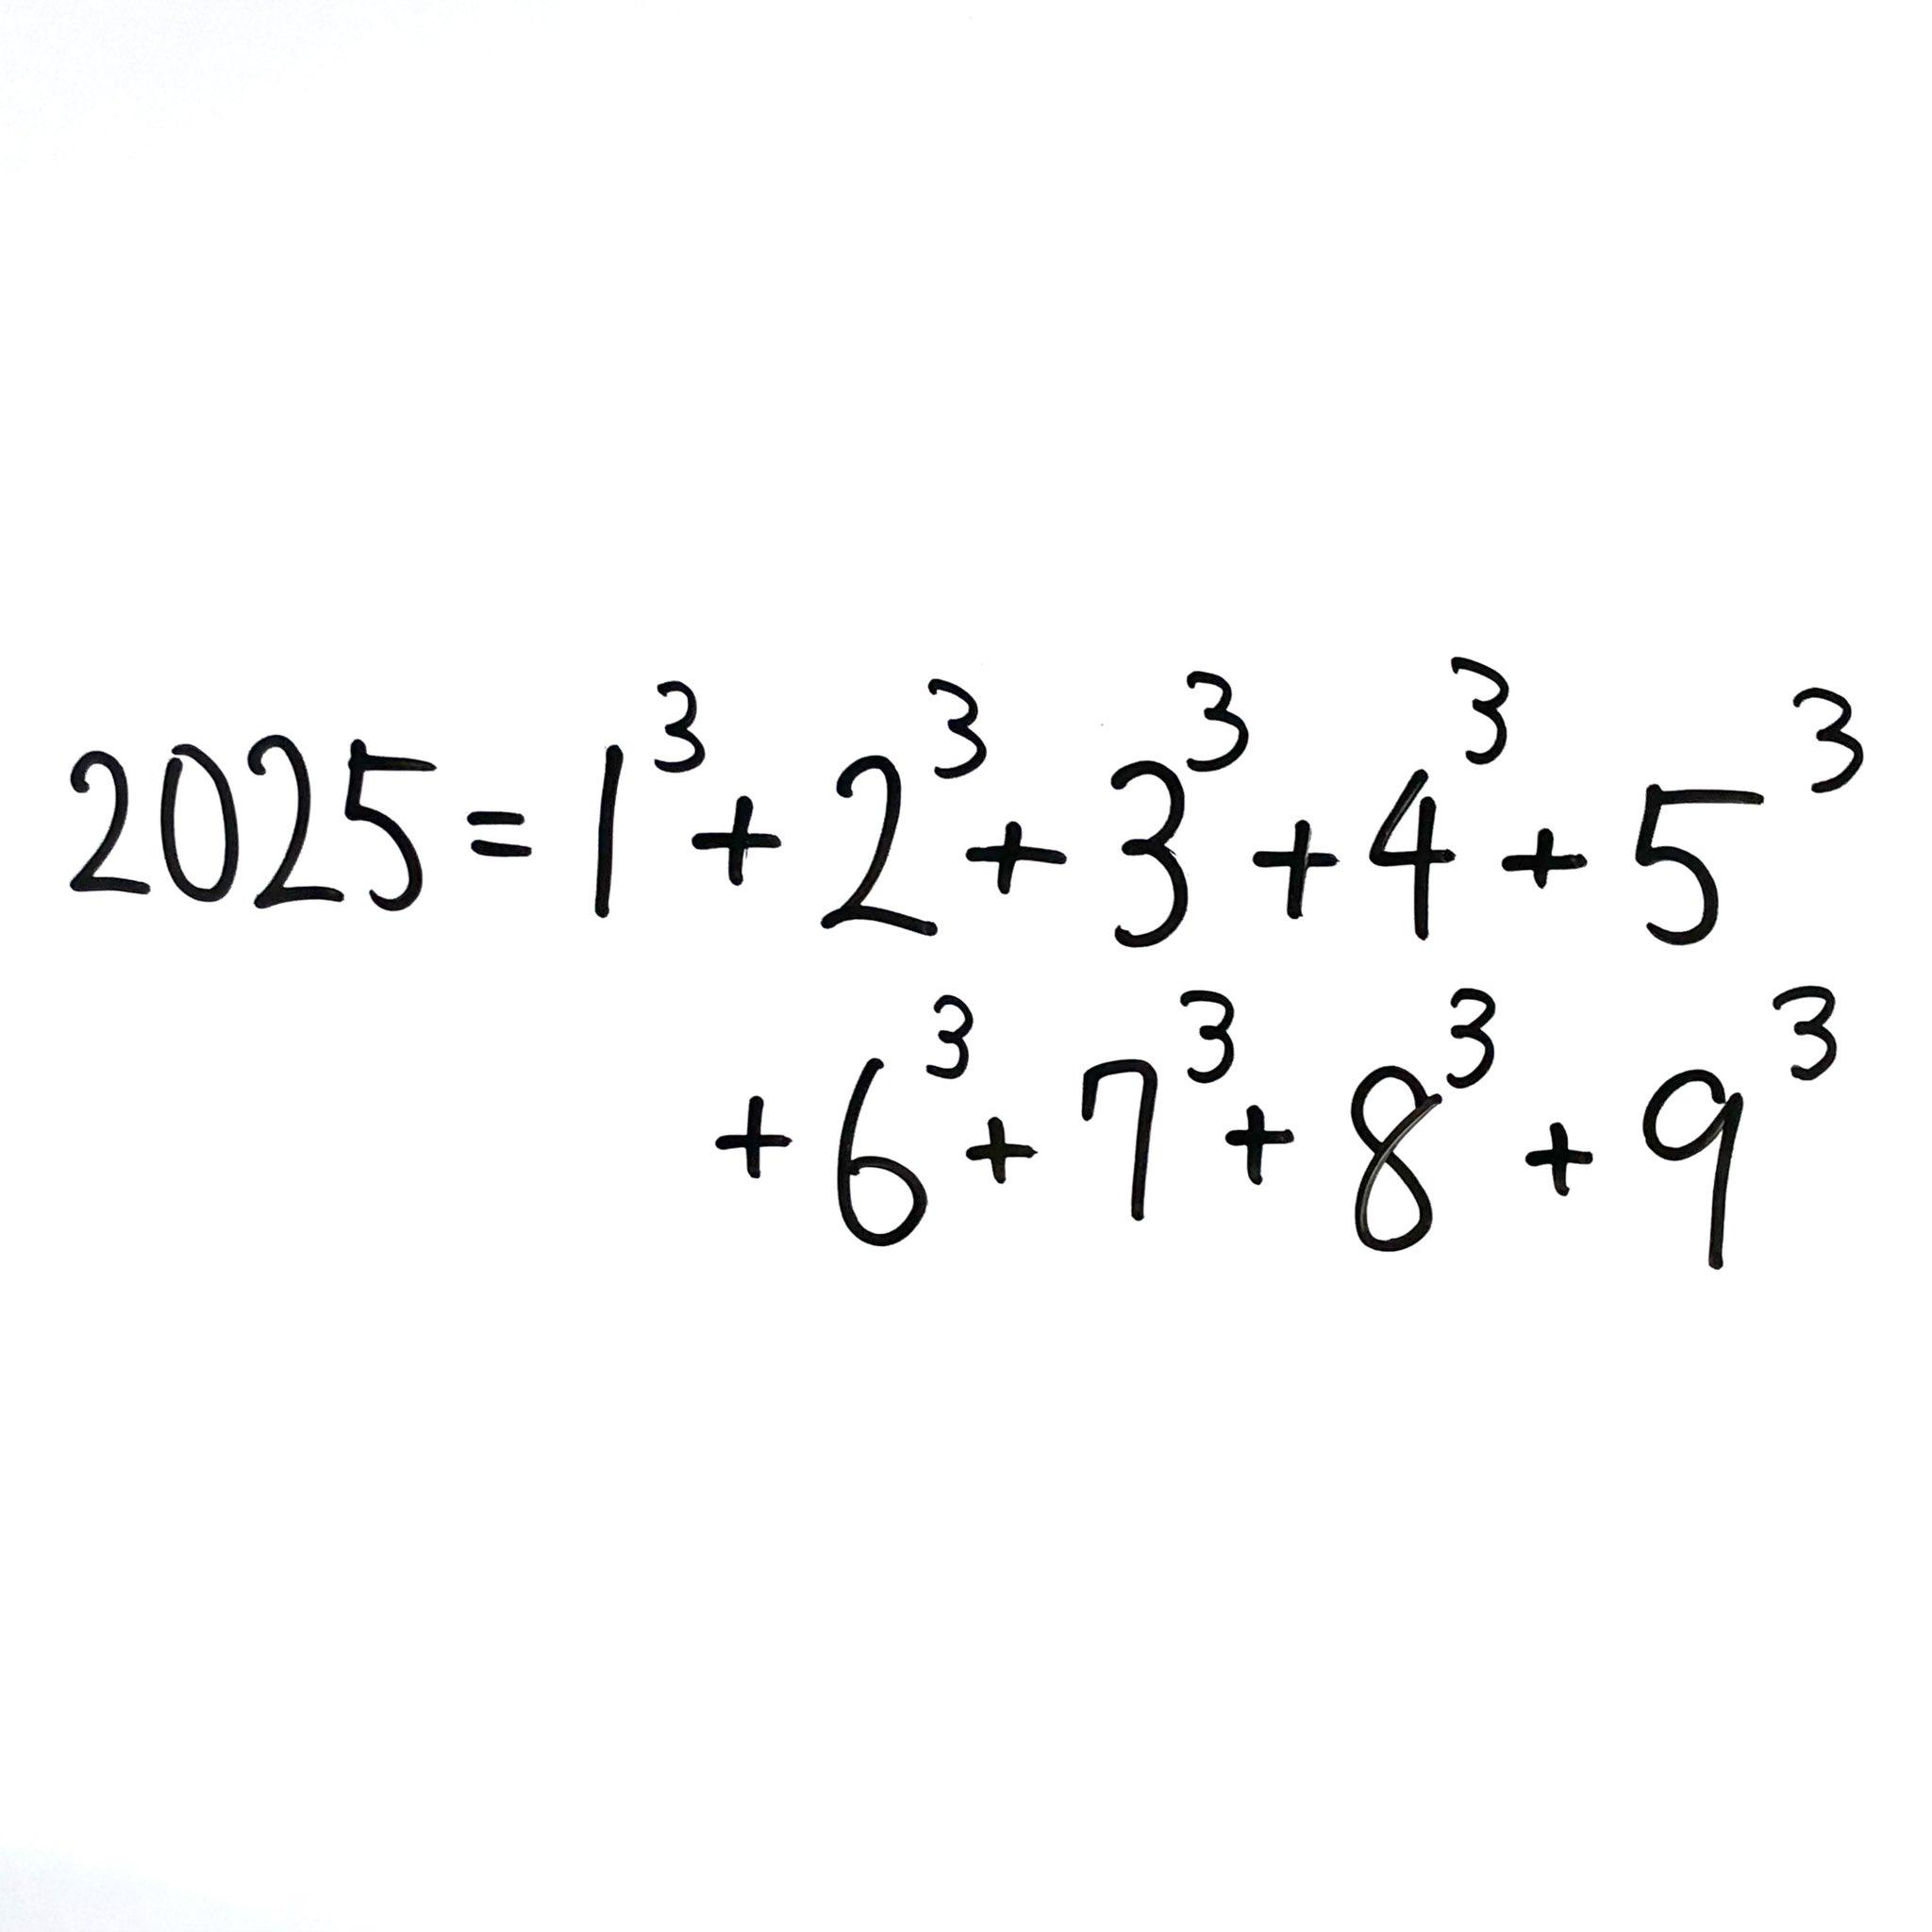 2025=1³+2³+3³+4³+5³
+6³+7³+8³+9³